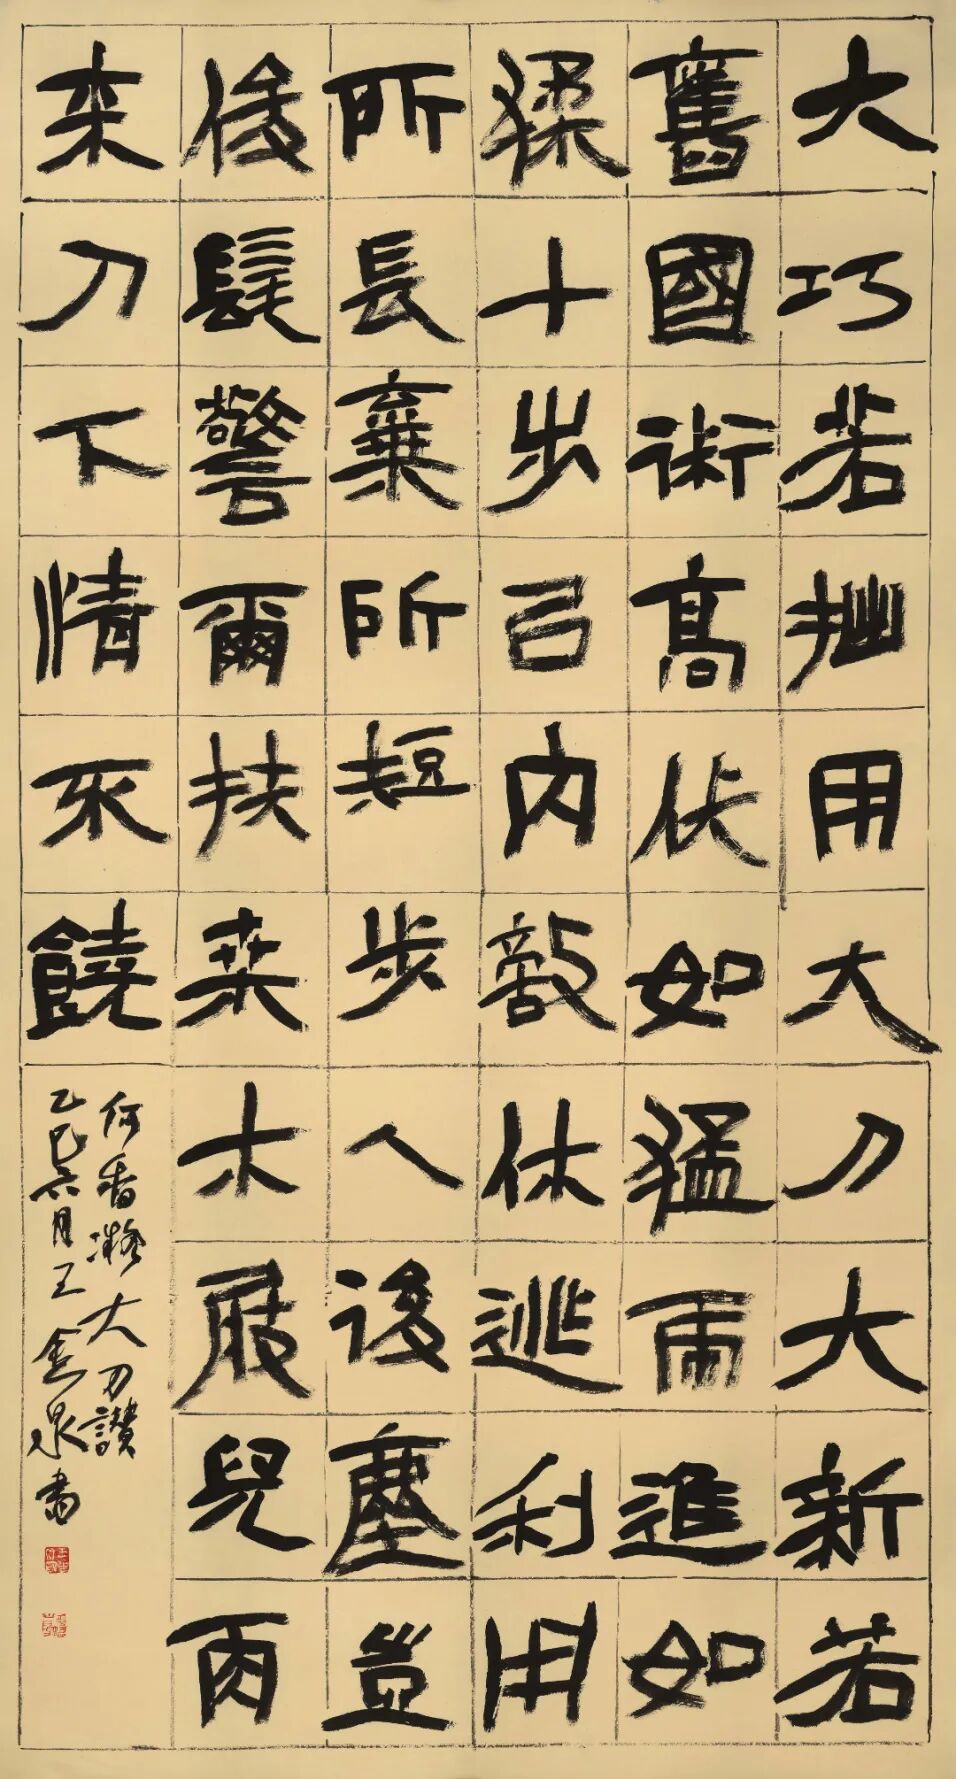 大巧若拙用大刀大新若
舊國術高伏如猛虎進如
猱十步㠯内敵休逃利用
所長棄所短步人後塵豈
俊髦警爾扶桒木屐兒再
来刀下情不饒
何香凝大刀讃
乙巳六月王金泉書